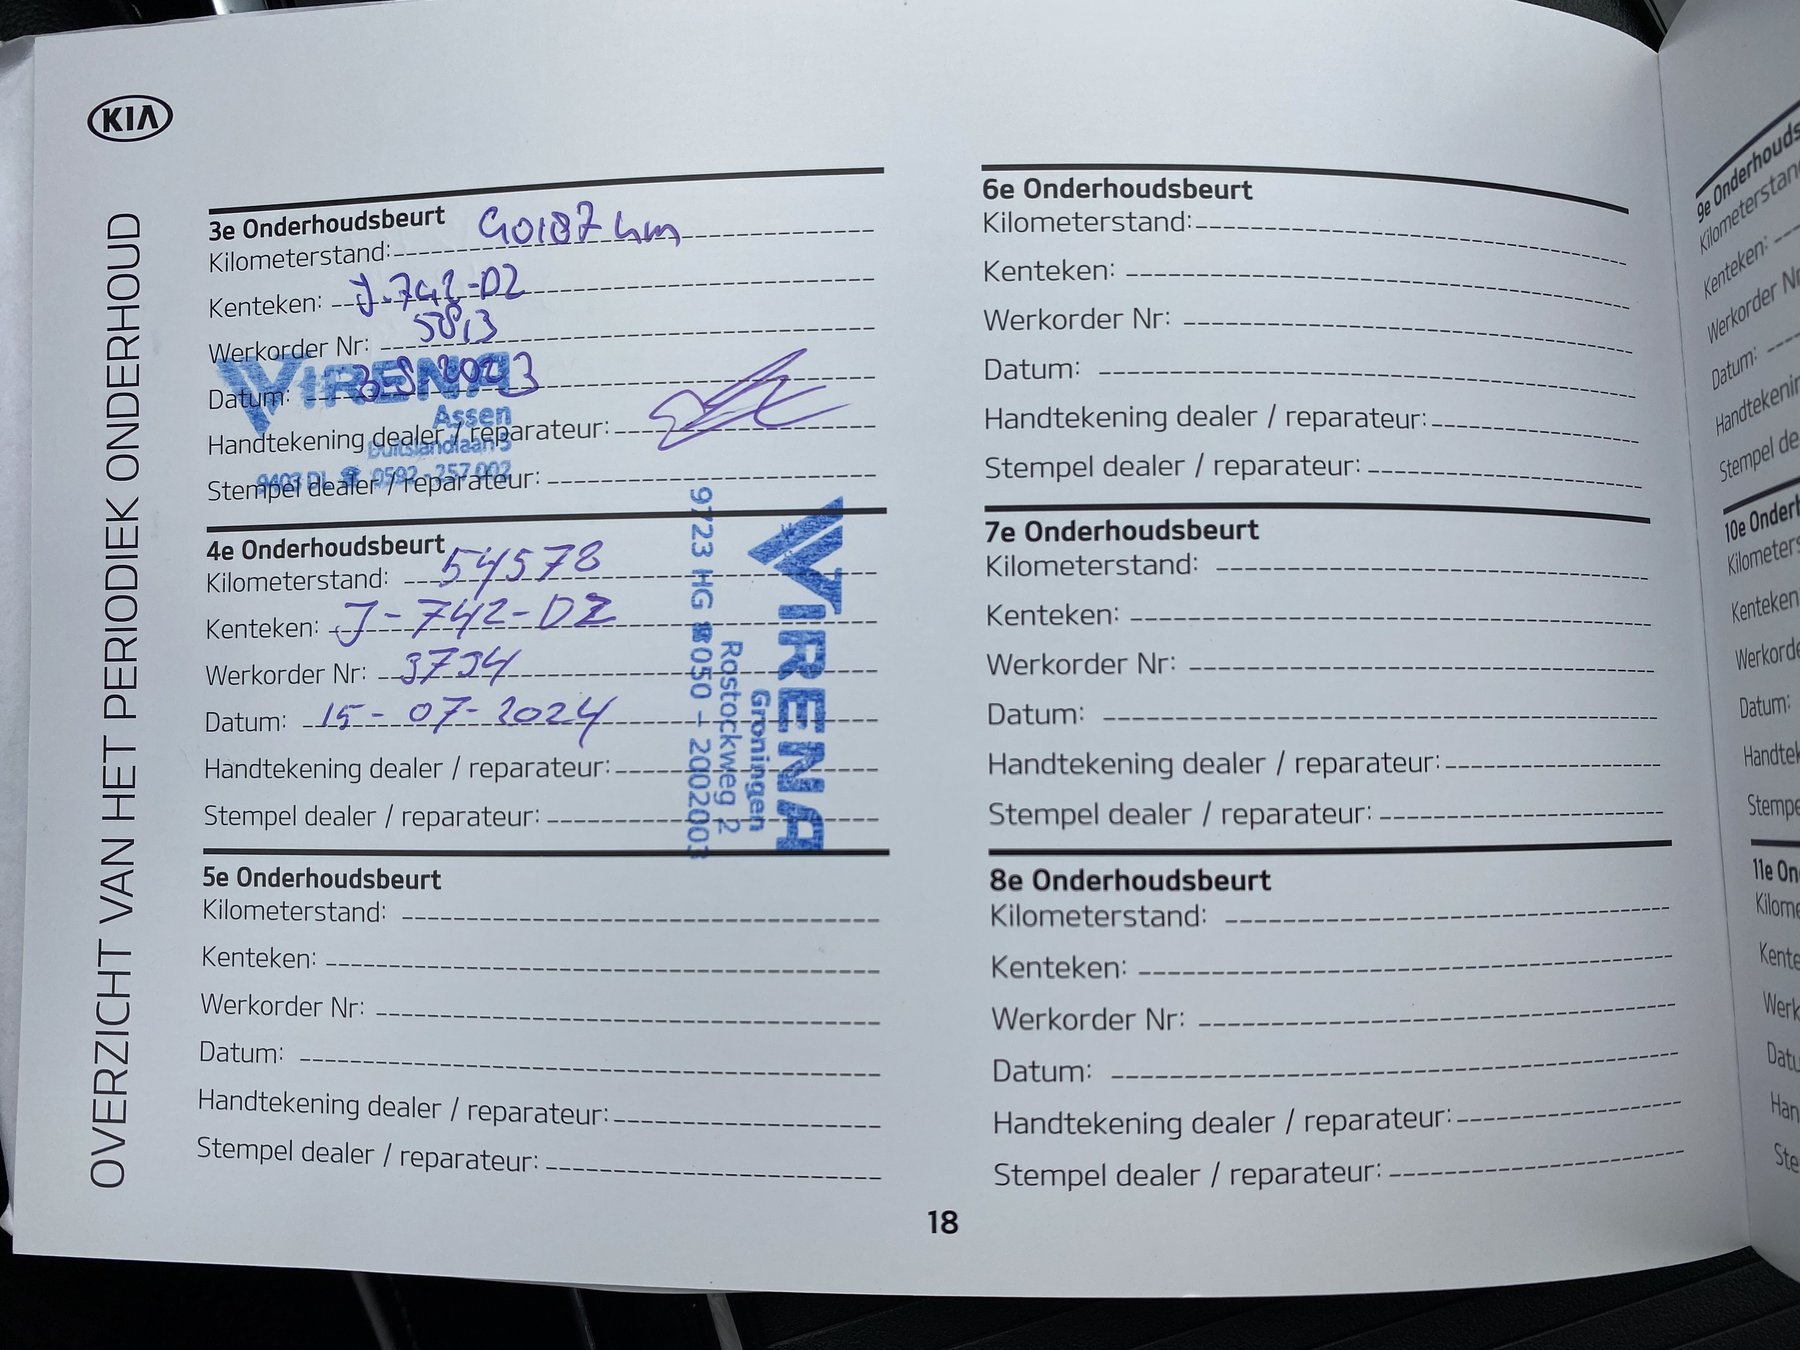 KIA
OVERZICHT VAN HET PERIODIEK ONDERHOUD
3e Onderhoudsbeurt
Kilometerstand: 40187 km
Kenteken: J-742-DZ
Werkorder Nr: 5813
Datum:
Handtekening dealer / reparateur:
Stempel dealer / reparateur:
VIRENA
Assen
Duitslandlaan 3
9403 DL ☎ 0592-257 002
4e Onderhoudsbeurt
Kilometerstand: 54578
Kenteken: J-742-DZ
Werkorder Nr:
Datum: 15-07-2024
Handtekening dealer / reparateur:
Stempel dealer / reparateur:
VIRENA
Groningen
Rostockweg 2
9723 HG ☎ 050 - 2002003
5e Onderhoudsbeurt
Kilometerstand:
Kenteken:
Werkorder Nr:
Datum:
Handtekening dealer / reparateur:
Stempel dealer / reparateur:
6e Onderhoudsbeurt
Kilometerstand:
Kenteken:
Werkorder Nr:
Datum:
Handtekening dealer / reparateur:
Stempel dealer / reparateur:
7e Onderhoudsbeurt
Kilometerstand:
Kenteken:
Werkorder Nr:
Datum:
Handtekening dealer / reparateur:
Stempel dealer / reparateur:
8e Onderhoudsbeurt
Kilometerstand:
Kenteken:
Werkorder Nr:
Datum:
Handtekening dealer / reparateur:
Stempel dealer / reparateur:
18
9e Onderhouds
Kilometerstan
Kenteken:
Werkorder Nr
Datum:
Handtekenin
Stempel de
10e Onderh
Kilometers
Kenteken
Werkorde
Datum:
Handtek
Stempe
11e On
Kilome
Kente
Werk
Datu
Han
Ste